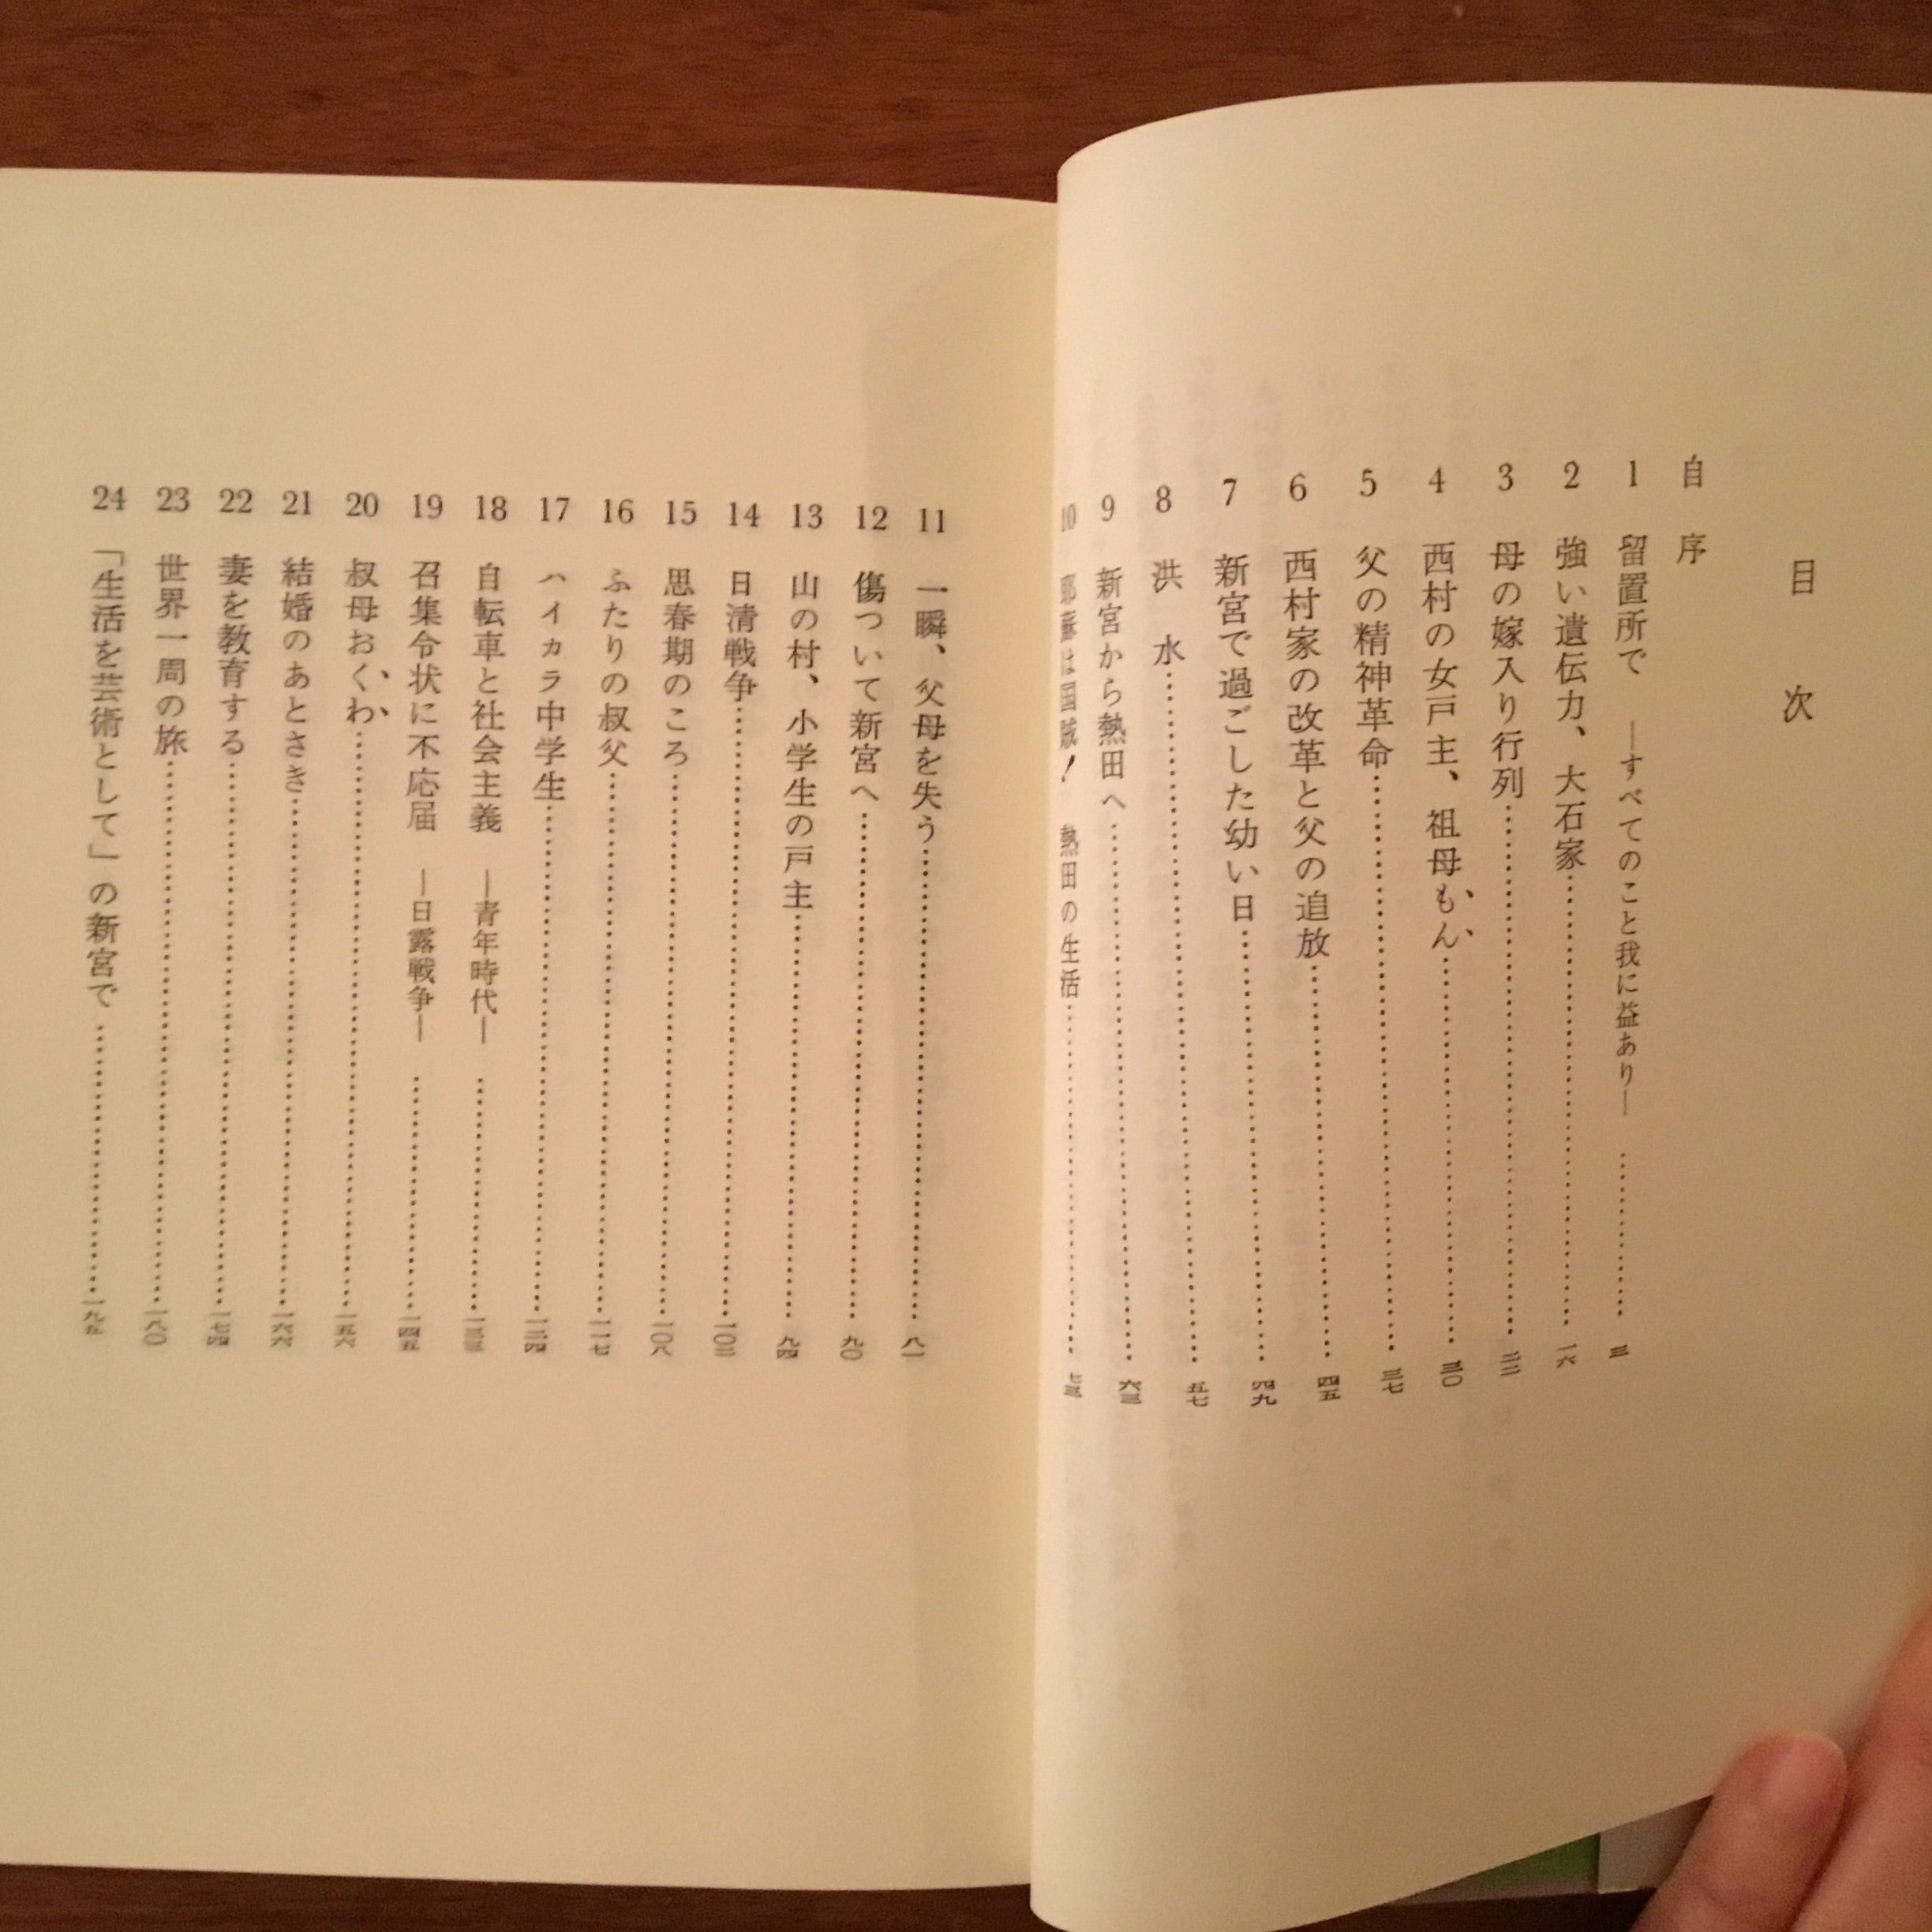 目次
自序
1 留置所で ―すべてのこと我に益あり― ……… 三
2 強い遺伝力、大石家 ……… 一六
3 母の嫁入り行列 ……… 二二
4 西村の女戸主、祖母もん ……… 三〇
5 父の精神革命 ……… 三七
6 西村家の改革と父の追放 ……… 四五
7 新宮で過ごした幼い日 ……… 四九
8 洪水 ……… 五七
9 新宮から熱田へ ……… 六三
10 耶蘇は国賊! 熱田の生活 ……… 七三
11 一瞬、父母を失う ……… 八一
12 傷ついて新宮へ ……… 九〇
13 山の村、小学生の戸主 ……… 九四
14 日清戦争 ……… 一〇三
15 思春期のころ ……… 一〇八
16 ふたりの叔父 ……… 一一七
17 ハイカラ中学生 ……… 一二四
18 自転車と社会主義 ―青年時代― ……… 一三三
19 召集令状に不応届 ―日露戦争― ……… 一四五
20 叔母おくわ ……… 一五六
21 結婚のあとさき ……… 一六六
22 妻を教育する ……… 一七四
23 世界一周の旅 ……… 一八〇
24 「生活を芸術として」の新宮で ………